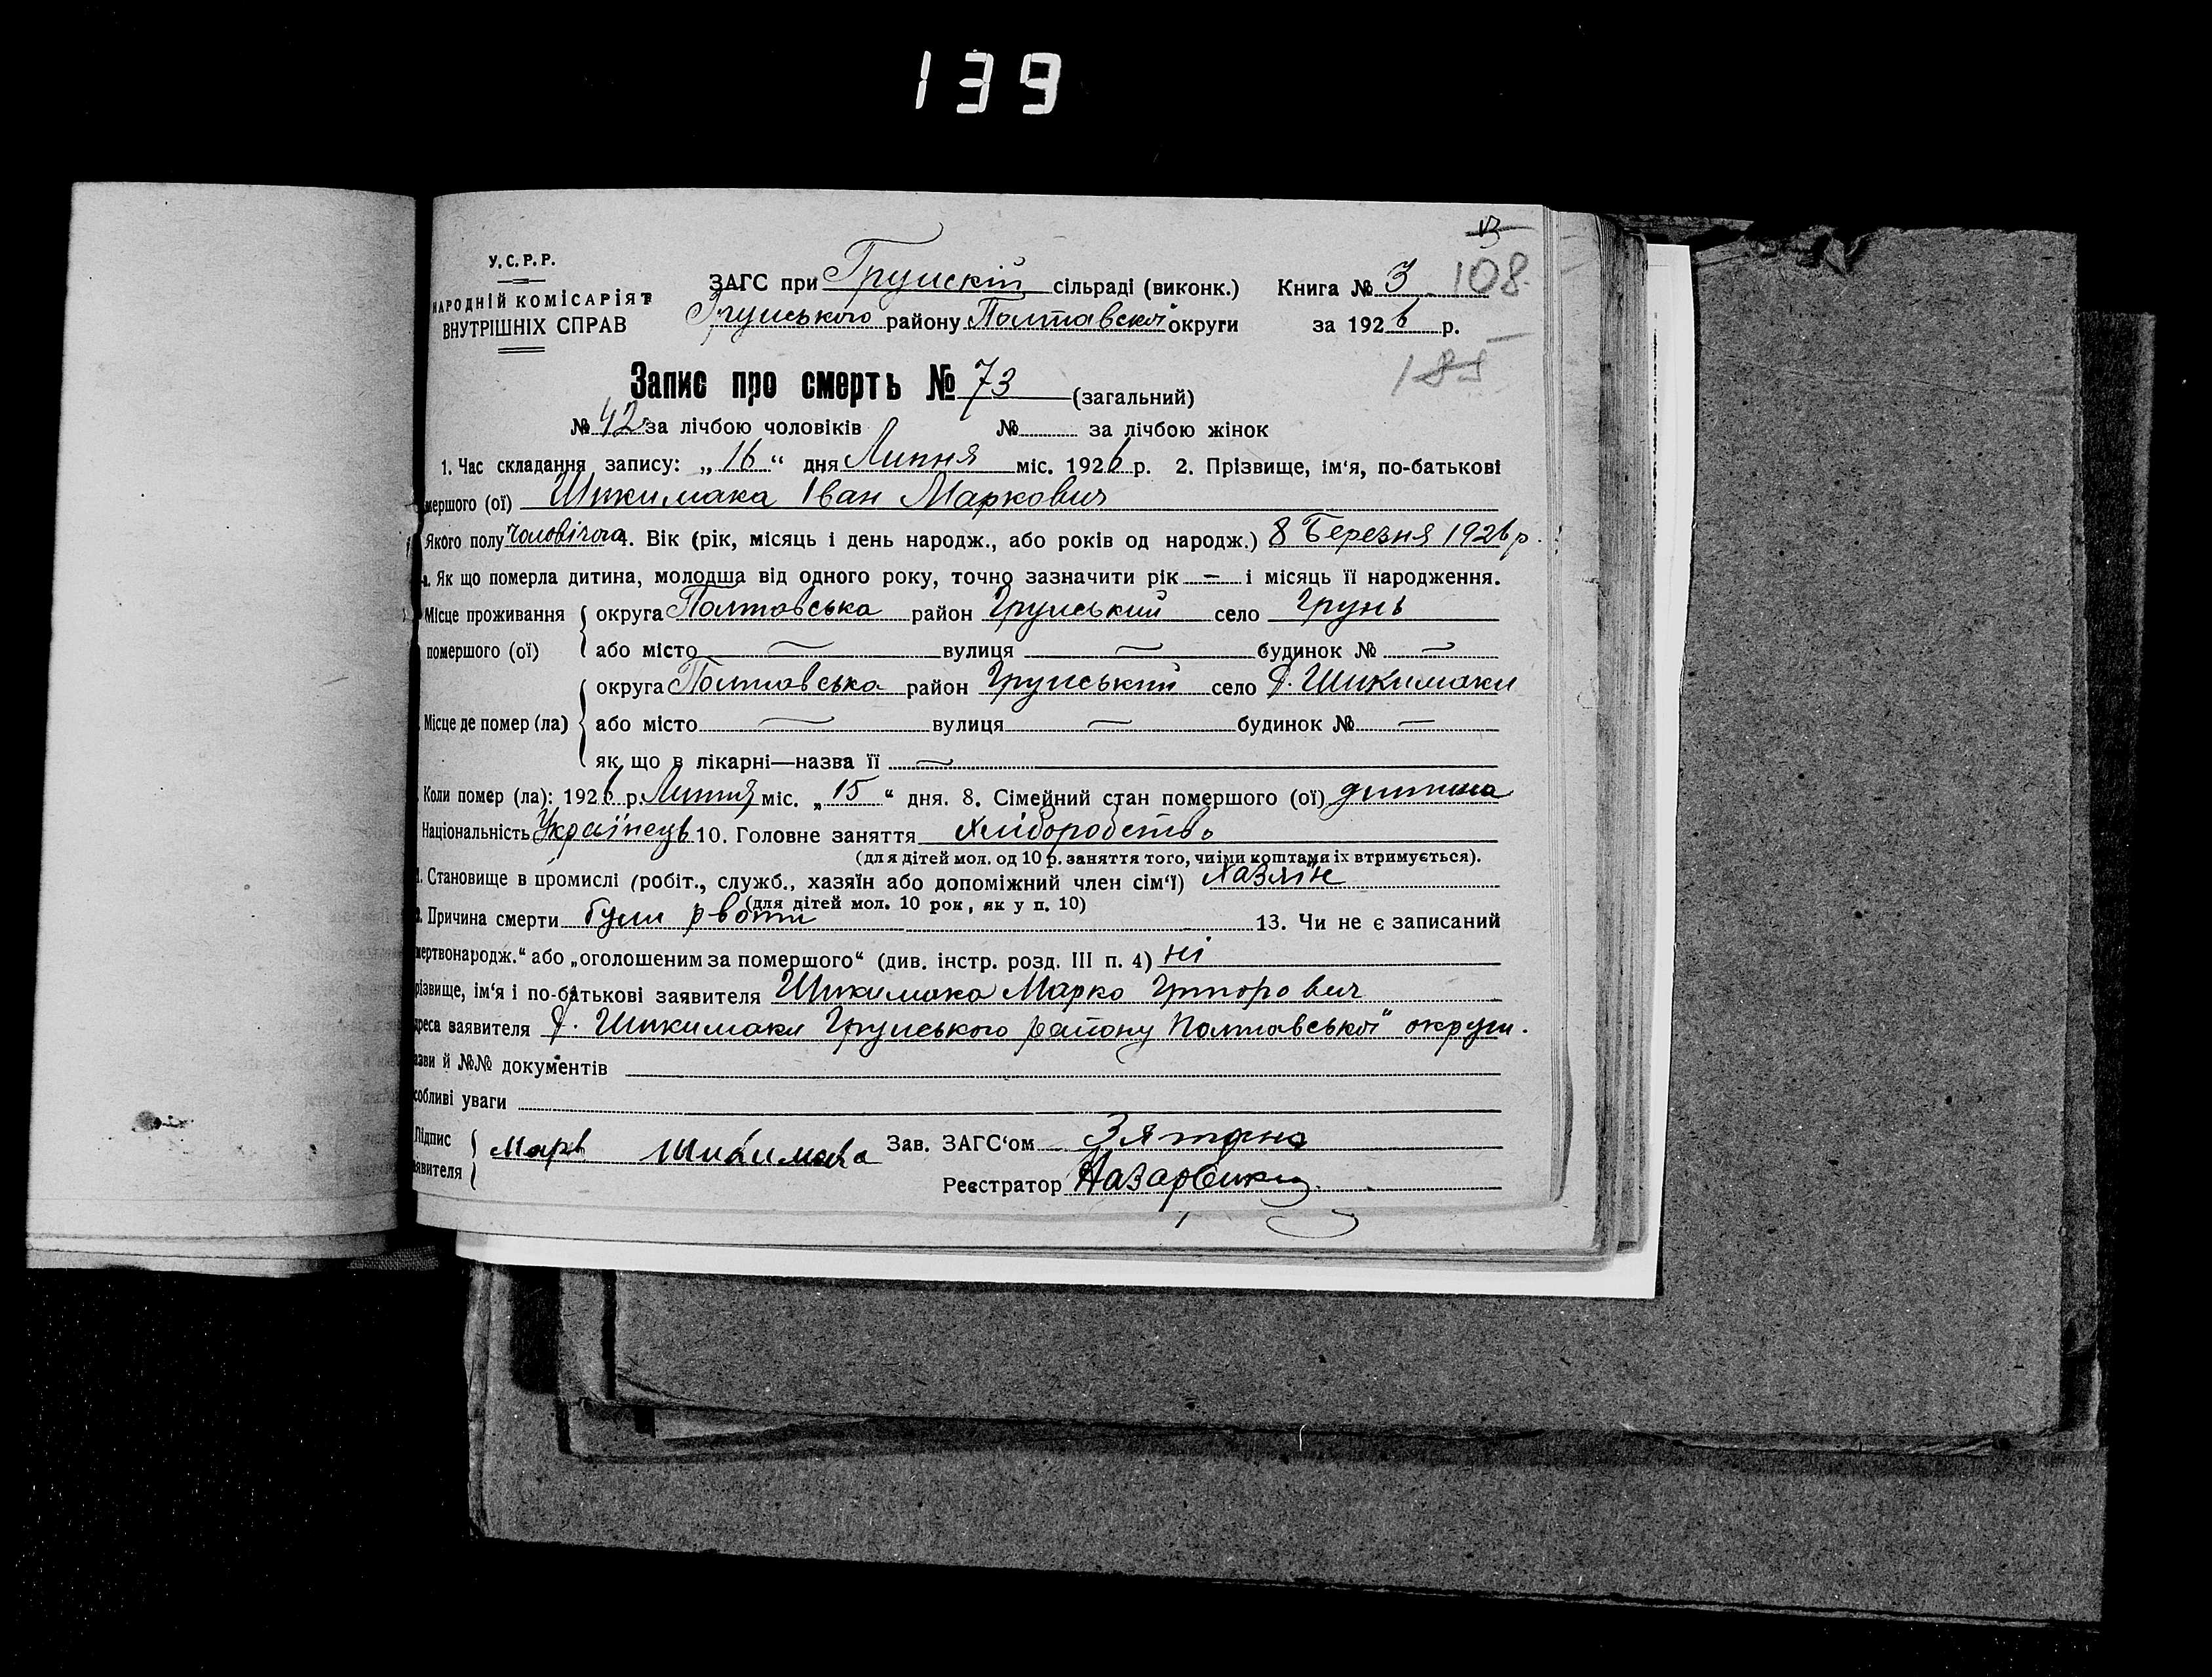 139
13
У.С.Р.Р.
НАРОДНІЙ КОМІСАРІЯТ
ВНУТРІШНІХ СПРАВ
ЗАГС при Грунській сільраді (виконк.) Книга № 3 108
Грунського району Полтавскої округи за 1926 р.
185
Запис про смерть № 73 (загальний)
№ 42 за лічбою чоловіків № за лічбою жінок
1. Час складання запису: „16“ дня Липня міс. 1926 р. 2. Прізвище, ім‘я, по-батькові
мершого (ої) Шикимака Іван Маркович
Якого полу Чоловічого 4. Вік (рік, місяць і день народж., або років од народж.) 8 Березня 1926 р.
а. Як що померла дитина, молодша від одного року, точно зазначити рік — і місяць її народження.
Місце проживання округа Полтовська район Грунський село Грунь
помершого (ої) або місто — вулиця — будинок № —
округа Полтавська район Грунський село Д. Шикимаки
Місце де помер (ла) або місто — вулиця — будинок № —
як що в лікарні—назва її —
Коли помер (ла): 1926 р. Липня міс. „15“ дня. 8. Сімейний стан помершого (ої) дитина
Національність Українець 10. Головне заняття хліборобство
(для дітей мол. од 10 р. заняття того, чиїми коштами їх втримується).
1. Становище в промислі (робіт., служб., хазяїн або допоміжний член сім‘ї) Хазяїн
(для дітей мол. 10 рок, як у п. 10)
Причина смерти були рвоти 13. Чи не є записаний
мертвонародж.“ або „оголошеним за помершого“ (див. інстр. розд. III п. 4) ні
різвище, ім‘я і по-батькові заявителя Шикимака Марко
дреса заявителя Д. Шикимаки Грунського району Полтавської округи.
азви й №№ документів
собливі уваги
Підпис Марк Шикимака Зав. ЗАГС‘ом
аявителя
Реєстратор